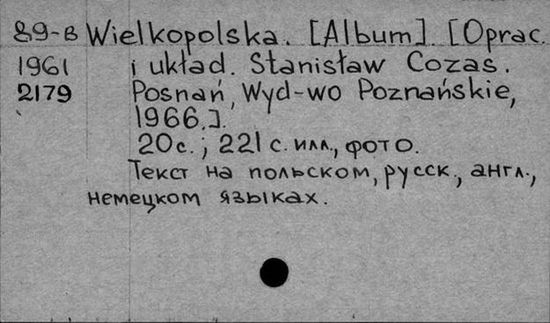 89-в Wielkopolska. [Album]. [Oprac.
1961 i układ. Stanisław Cozas.
2179 Posnań, Wyd-wo Poznańskie,
1966.].
20с.; 221 с. илл., фото.
Текст на польском, русск., англ.,
немецком языках.